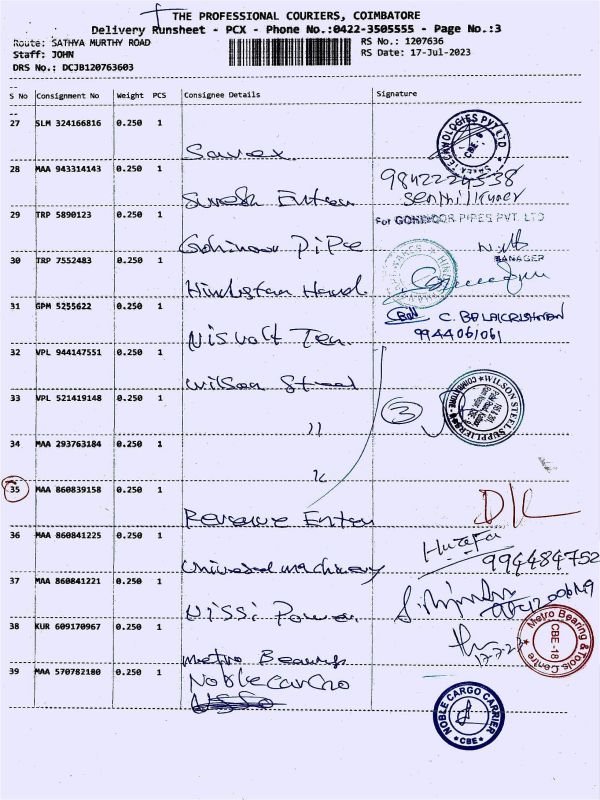 THE PROFESSIONAL COURIERS, COIMBATORE
Delivery Runsheet - PCX - Phone No.:0422-3505555 - Page No.:3
Route: SATHYA MURTHY ROAD RS No.: 1207636
Staff: JOHN RS Date: 17-Jul-2023
DRS No.: DCJB120763603
S No Consignment No Weight PCS Consignee Details Signature
27 SLM 324166816 0.250 1
Savex
28 MAA 943314143 0.250 1
Suresh Enten
senthilkumar
29 TRP 5890123 0.250 1
For GOHINOOR PIPES PVT. LTD
Gohinoor Pipe
MANAGER
30 TRP 7552483 0.250 1
Hindustan Hard
31 GPM 5255622 0.250 1
C. BALAKRISHNAN
9944061061
32 VPL 944147551 0.250 1
Wilson Steel
33 VPL 521419148 0.250 1
WILSON STEEL SUPPLIERS
COIMBATORE
3
"
34 MAA 293763184 0.250 1
"
35 MAA 860839158 0.250 1
D/L
36 MAA 860841225 0.250 1
Huzefa
994484752
Universal machinery
37 MAA 860841221 0.250 1
Power
38 KUR 609170967 0.250 1
17.7.23
Metro Bearing & Tools Centre
CBE-18
Metro Bearings
39 MAA 570782180 0.250 1
Noble Cargo
NOBLE CARGO CARRIER
CBE